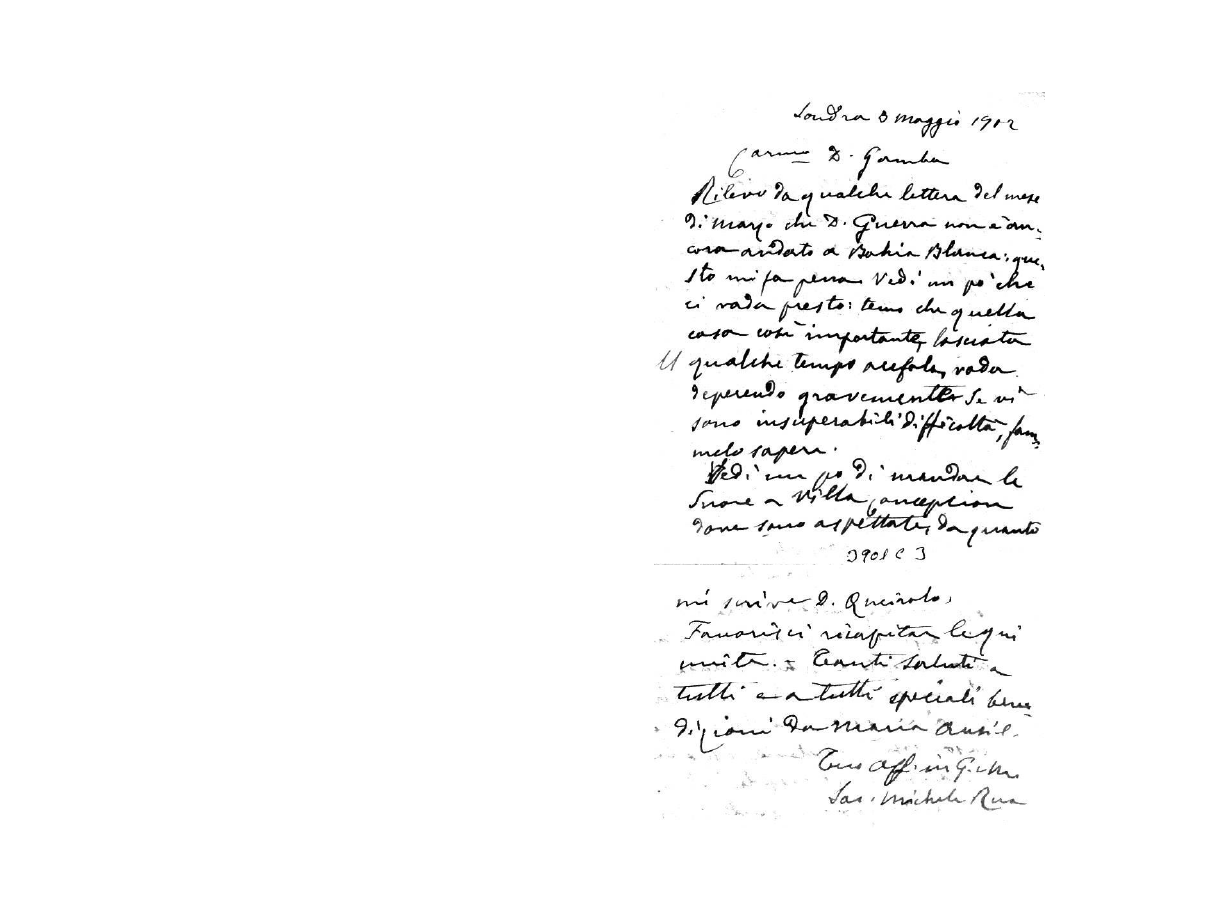 Londra 3 maggio 1902
Carmo D. Gamba
Rilevo da qualche lettera del mese
di marzo che D. Guerra non è an-
cora andato a Bahia Blanca: que-
sto mi fa pena. Vedi un po' che
ci vada presto: temo che quella
casa così importante, lasciata
qualche tempo acefala, vada
deperendo gravemente. Se vi
sono insuperabili difficoltà, fam-
melo sapere.
Vedi un po di mandar le
Suore a Villa Conception
dove sono aspettate, da quanto
3901 C 3
mi scrive D. Queirolo.
Favorisci ricapitar le qui
unite. - Tanti saluti a
tutti e a tutti speciali bene
dizioni da Maria Ausil.
Tuo aff. in G. e M.
Sac. Michele Rua